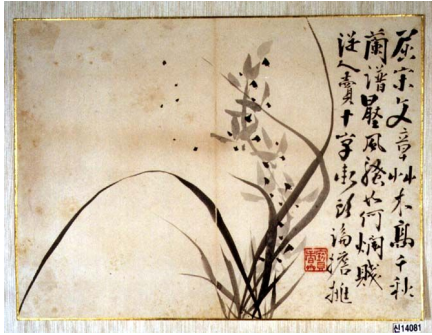 屈宋文章艸木高千秋
蘭譜壓風騷如何爛賤
從人賣十字街頭論擔挑
신14081